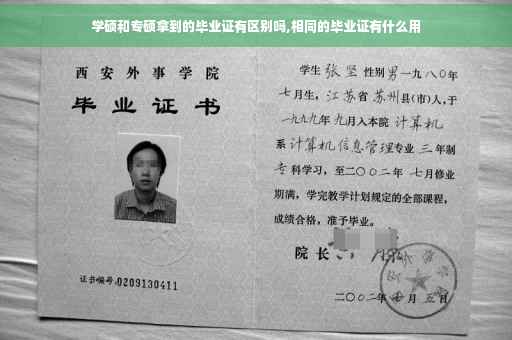 学硕和专硕拿到的毕业证有区别吗,相同的毕业证有什么用
西安外事学院
毕业证书
证书编号:0209130411
学生 张坚 性别 男 一九八〇年
七月生, 江苏省 苏州县(市)人,于
一九九九年 九月入本院 计算机
系 计算机信息管理专业 三 年制
专 科学习,至二〇〇二年 七月修业
期满,学完教学计划规定的全部课程,
成绩合格,准予毕业。
院长
二〇〇二年 月 五日